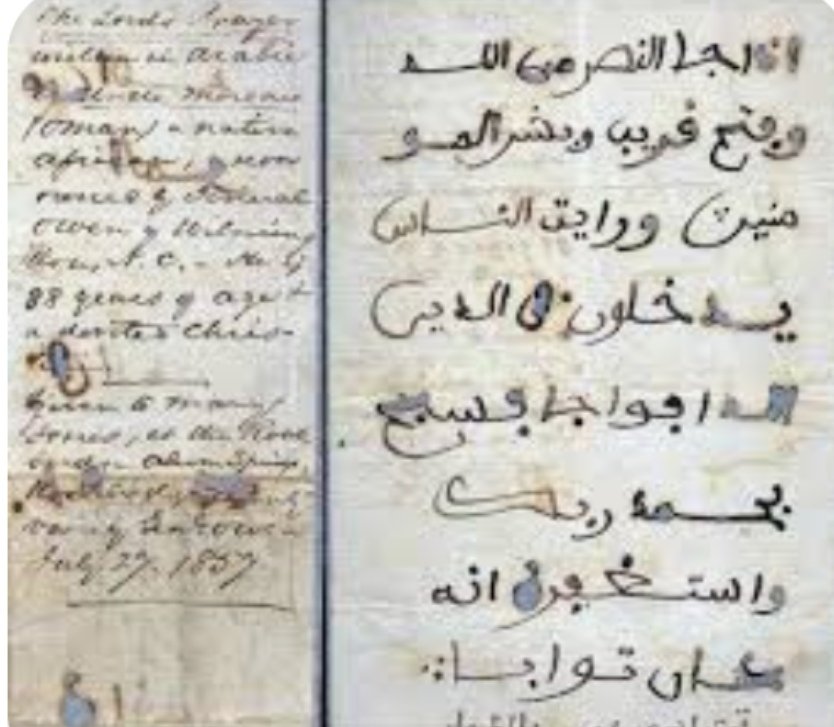 The Lord's Prayer
written in Arabic
by Uncle Moreau
(Omar) a native
African, now
owned by General
Owen of Wilming
ton, N.C. - He is
88 years of age &
a devoted Chris-

Given to Mary
Jones, at the
Alum Springs,

July 27. 1857
اذا جا النصر من الله
وفتح فريب وبشر المو
منين ورايت النـــاس
يــد خلون في الدين
الله افواجا فسبح
بحـــمد ربك
واستـــغفره انه
كـــان توابـــا:.